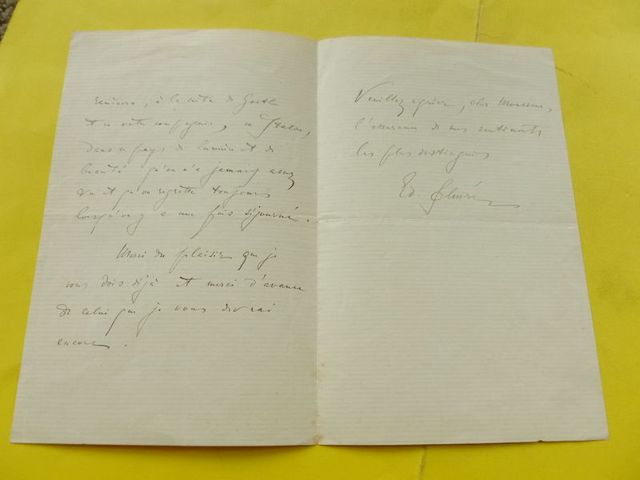 revivre, à la suite de Goethe
et en votre compagnie, en Italie,
dans ce pays de lumière et de
beauté qu'on n'a jamais assez
vu et qu'on regrette toujours
lorsqu'on y a une fois séjourné.
Merci du plaisir que je
vous dois déjà et merci d'avance
de celui que je vous devrai
encore.
Veuillez agréer, cher Monsieur,
l'assurance de mes sentiments
les plus distingués
Ed. Schuré